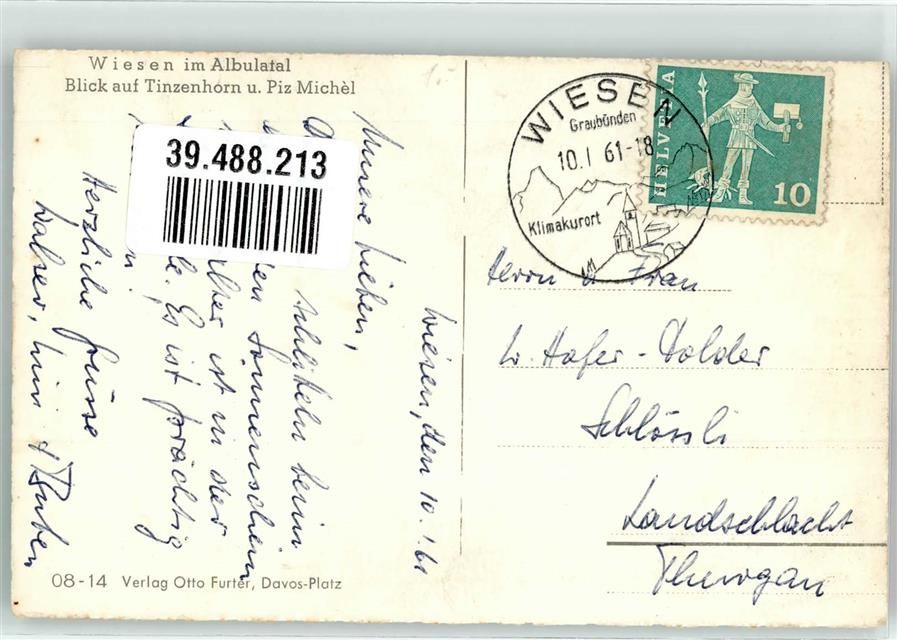 Wiesen im Albulatal
Blick auf Tinzenhorn u. Piz Michèl
39.488.213
Wiesen, den 10.1.61
Meine Lieben,
schlitteln beim
Sonnenschein
ist in der
Es ist prächtig
Herzliche Grüsse
Walter,
08-14 Verlag Otto Furter, Davos-Platz
WIESEN
Graubünden
10.I 61-18
Klimakurort
HELVETIA
10
Herrn u Frau
Hofer-Dolder
Schlössli
Landschlacht
Thurgau